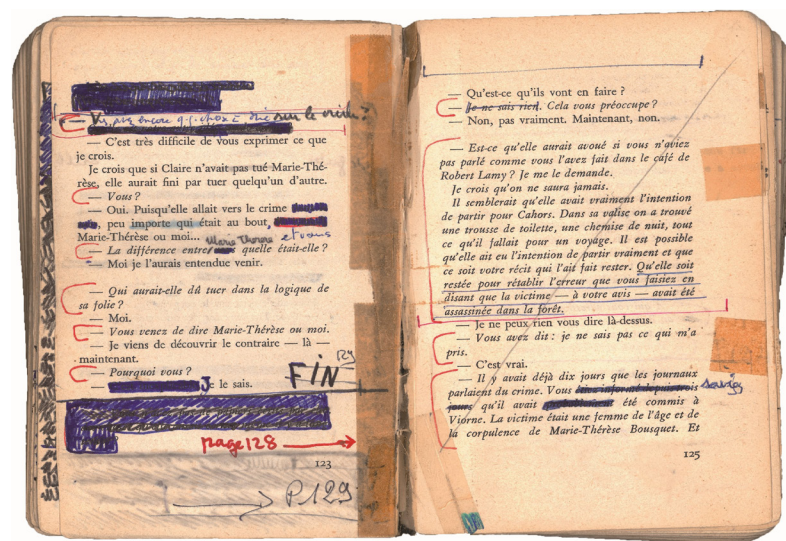 — Vs, pas encore q.q. chose à dire sur le crime ?
— C'est très difficile de vous exprimer ce que
je crois.
Je crois que si Claire n'avait pas tué Marie-Thé-
rèse, elle aurait fini par tuer quelqu'un d'autre.
— Vous ?
— Oui. Puisqu'elle allait vers le crime
, peu importe qui était au bout,
Marie-Thérèse ou moi...
Marie Thérèse et vous
— La différence entre quelle était-elle ?
— Moi je l'aurais entendue venir.
— Qui aurait-elle dû tuer dans la logique de
sa folie ?
— Moi.
— Vous venez de dire Marie-Thérèse ou moi.
— Je viens de découvrir le contraire — là —
maintenant.
— Pourquoi vous ?
— Je le sais.
FIN
129
page 128
123
P. 129
— Qu'est-ce qu'ils vont en faire ?
— Je ne sais rien. Cela vous préoccupe ?
— Non, pas vraiment. Maintenant, non.
— Est-ce qu'elle aurait avoué si vous n'aviez
pas parlé comme vous l'avez fait dans le café de
Robert Lamy ? Je me le demande.
Je crois qu'on ne saura jamais.
Il semblerait qu'elle avait vraiment l'intention
de partir pour Cahors. Dans sa valise on a trouvé
une trousse de toilette, une chemise de nuit, tout
ce qu'il fallait pour un voyage. Il est possible
qu'elle ait eu l'intention de partir vraiment et que
ce soit votre récit qui l'ait fait rester. Qu'elle soit
restée pour rétablir l'erreur que vous faisiez en
disant que la victime — à votre avis — avait été
assassinée dans la forêt.
— Je ne peux rien vous dire là-dessus.
— Vous avez dit : je ne sais pas ce qui m'a
pris.
— C'est vrai.
— Il y avait déjà dix jours que les journaux
parlaient du crime. Vous étiez informé depuis trois
saviez
jours qu'il avait probablement été commis à
Viorne. La victime était une femme de l'âge et de
la corpulence de Marie-Thérèse Bousquet. Et
125